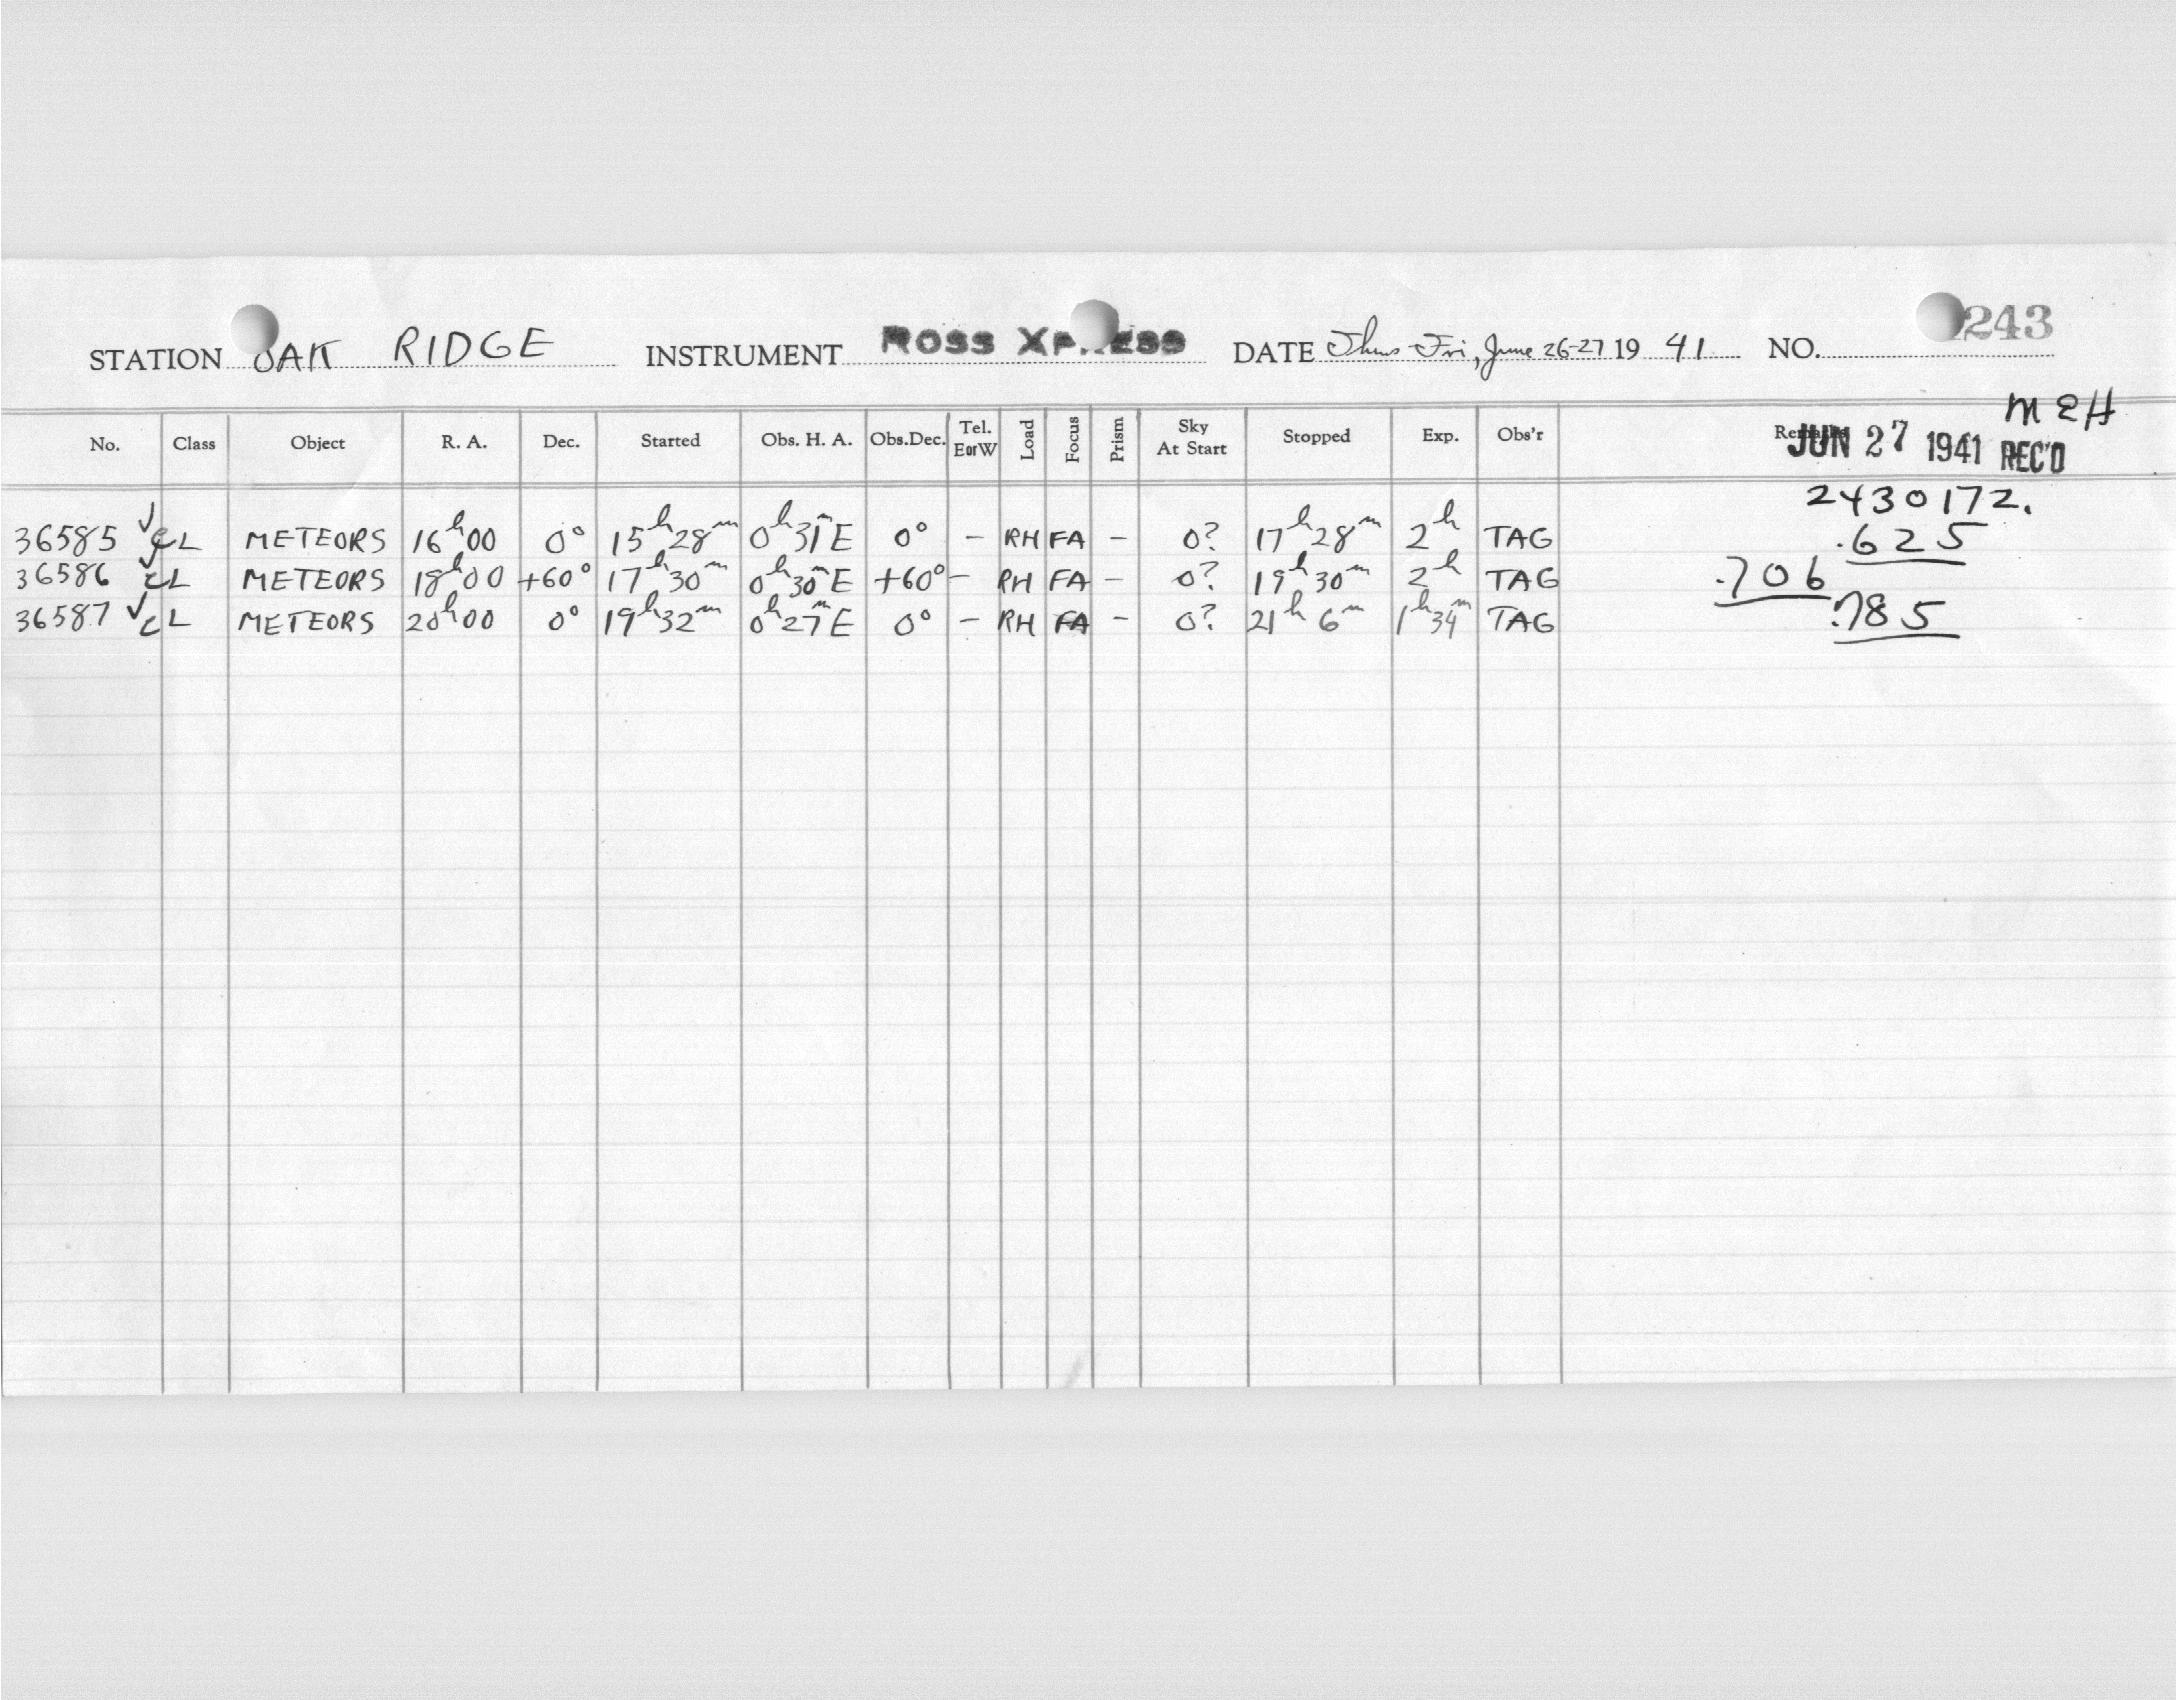 STATION OAK RIDGE INSTRUMENT ROSS XPRESS DATE Thurs-Fri, June 26-27 19 41 NO. 243
MEH
No. Class Object R. A. Dec. Started Obs. H. A. Obs.Dec. Tel. EorW Load Focus Prism Sky At Start Stopped Exp. Obs'r Remarks
JUN 27 1941 REC'D
2430172.
36585 ✓ CL METEORS 16ʰ00 0° 15ʰ28ᵐ 0ʰ31ᵐE 0° - RH FA - 0? 17ʰ28ᵐ 2ʰ TAG .625
36586 ✓ CL METEORS 18ʰ00 +60° 17ʰ30ᵐ 0ʰ30ᵐE +60° - RH FA - 0? 19ʰ30ᵐ 2ʰ TAG .706
36587 ✓ CL METEORS 20ʰ00 0° 19ʰ32ᵐ 0ʰ27ᵐE 0° - RH FA - 0? 21ʰ6ᵐ 1ʰ34ᵐ TAG .785